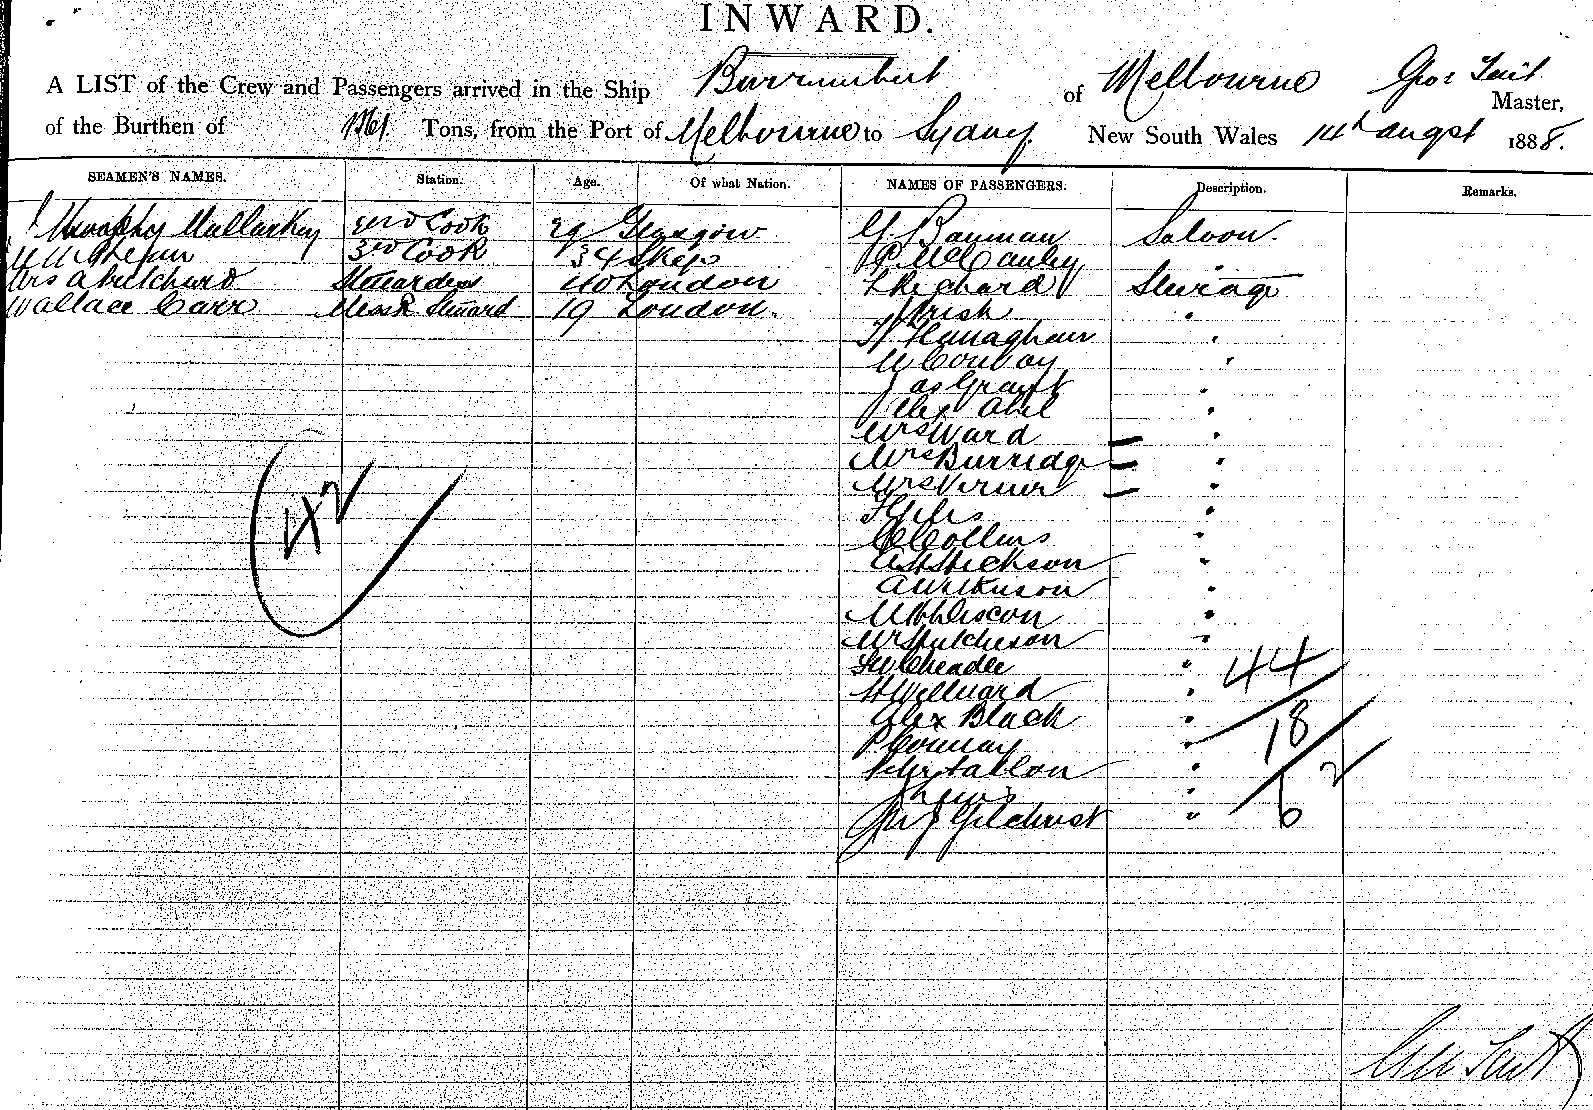 INWARD.
A LIST of the Crew and Passengers arrived in the Ship Burrumbeet of Melbourne Geo: Tait Master,
of the Burthen of Tons, from the Port of Melbourne to Sydney New South Wales 14th augst 1888.
SEAMEN'S NAMES. Station. Age. Of what Nation. NAMES OF PASSENGERS. Description. Remarks.
Murphy Mullarkey 2nd Cook 29 Glasgow Bauman Saloon.
3rd Cook 34 McCauley "
Mrs a Pritchard Stewardess 40 London Richard Steerage
Wallace Carr Mess R Steward 19 London. Irish "
Hanaghan "
Conway "
Jas Grant "
Alex "
Mrs Ward "
Mrs Burridge "
Mrs Verner "
Giles "
C Collins "
Hickson "
A Wilkinson "
"
Mrs Hutcheson "
Cheadle " 44
H Willuard "
Alex Black " 18
P Conway "
Peter Fallon " 62
"
Gilchrist "
42
Geo Tait